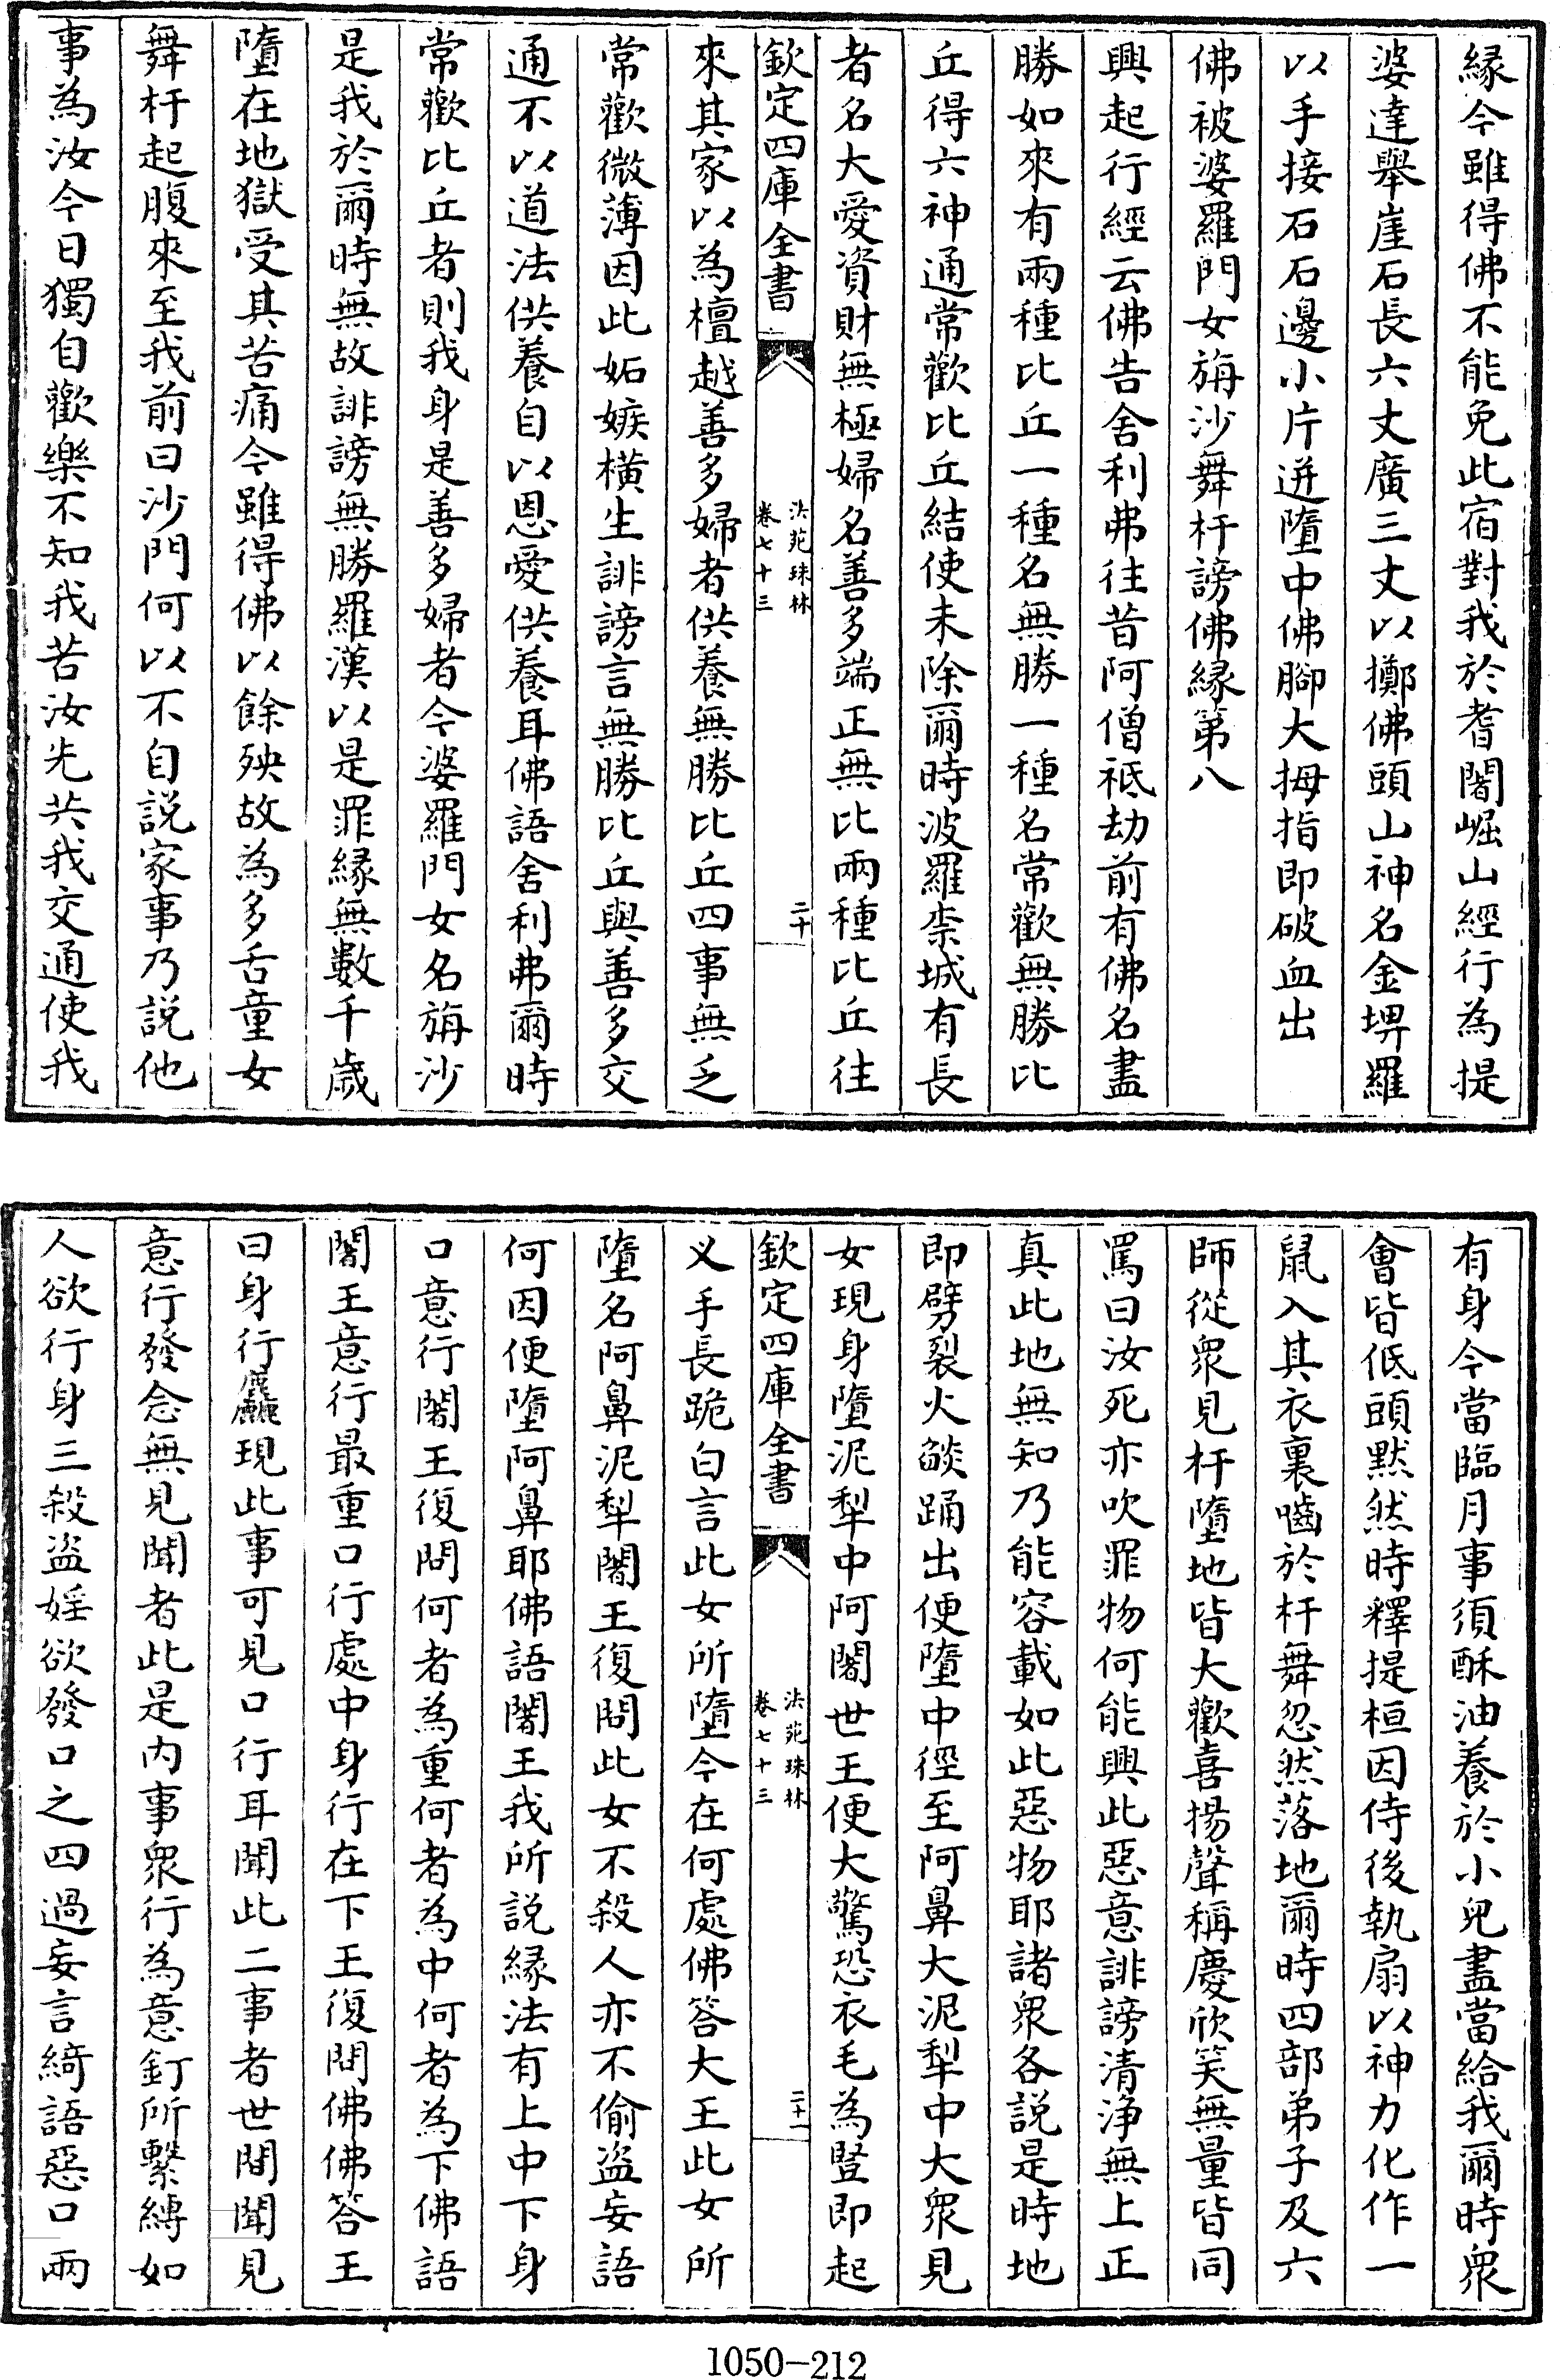 緣今雖得佛不能免此宿對我於耆闍崛山經行為提
婆達舉崖石長六丈廣三丈以擲佛頭山神名金埤羅
以手接石石邊小片迸墮中佛腳大拇指即破血出
佛被婆羅門女旃沙舞杅謗佛緣第八
興起行經云佛告舍利弗往昔阿僧祗劫前有佛名盡
勝如來有兩種比丘一種名無勝一種名常歡無勝比
丘得六神通常歡比丘結使未除爾時波羅柰城有長
者名大愛資財無極婦名善多端正無比兩種比丘往
欽定四庫全書
法苑珠林
卷七十三
二十
來其家以為檀越善多婦者供養無勝比丘四事無乏
常歡微薄因此妬嫉橫生誹謗言無勝比丘與善多交
通不以道法供養自以恩愛供養耳佛語舍利弗爾時
常歡比丘者則我身是善多婦者今婆羅門女名旃沙
是我於爾時無故誹謗無勝羅漢以是罪緣無數千歲
墮在地獄受其苦痛今雖得佛以餘殃故為多舌童女
舞杅起腹來至我前曰沙門何以不自說家事乃說他
事為汝今日獨自歡樂不知我苦汝先共我交通使我
有身今當臨月事須酥油養於小兒盡當給我爾時眾
會皆低頭默然時釋提桓因侍後執扇以神力化作一
鼠入其衣裏嚙於杅舞忽然落地爾時四部弟子及六
師從眾見杅墮地皆大歡喜揚聲稱慶欣笑無量皆同
罵曰汝死亦吹罪物何能興此惡意誹謗清淨無上正
真此地無知乃能容載如此惡物耶諸眾各說是時地
即劈裂火燄踊出便墮中徑至阿鼻大泥犁中大眾見
女現身墮泥犁中阿闍世王便大驚恐衣毛為豎即起
欽定四庫全書
法苑珠林
卷七十三
二十一
义手長跪白言此女所墮今在何處佛答大王此女所
墮名阿鼻泥犁闍王復問此女不殺人亦不偷盜妄語
何因便墮阿鼻耶佛語闍王我所說緣法有上中下身
口意行闍王復問何者為重何者為中何者為下佛語
闍王意行最重口行處中身行在下王復問佛佛答王
曰身行麤現此事可見口行耳聞此二事者世間聞見
意行發念無見聞者此是內事眾行為意釘所繫縛如
人欲行身三殺盜婬欲發口之四過妄言綺語惡口兩
1050-212